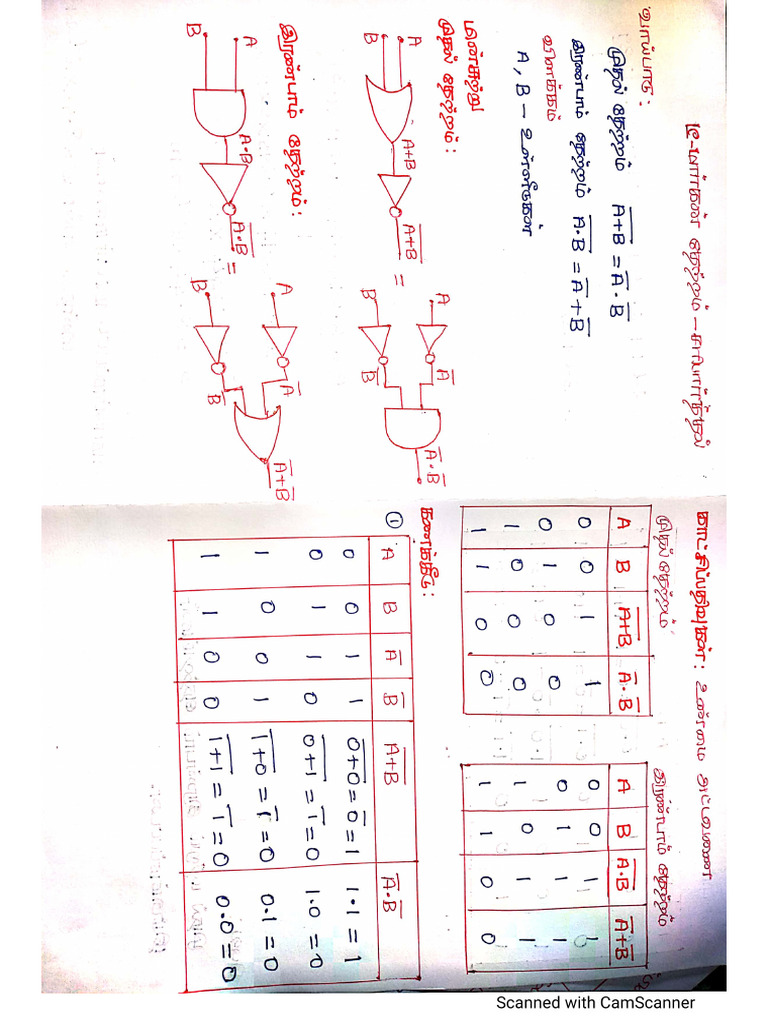 டீ-மார்கன் தேற்றம் - சரிபார்த்தல்
வாய்பாடு:
முதல் தேற்றம் A̅+̅B̅ = A̅·B̅
இரண்டாம் தேற்றம் A̅·̅B̅ = A̅+B̅
விளக்கம்
A, B – உள்ளீடுகள்
மின்சுற்று
முதல் தேற்றம்:
A
B
A+B
A̅+̅B̅
=
A
B
A̅
B̅
A̅·B̅
இரண்டாம் தேற்றம்:
A
B
A·B
A̅·̅B̅
=
A
B
A̅
B̅
A̅+B̅
காட்சிப்பதிவுகள்: உண்மை அட்டவணை
முதல் தேற்றம்
A B A̅+̅B̅ A̅·B̅
0 0 1 1
0 1 0 0
1 0 0 0
1 1 0 0
இரண்டாம் தேற்றம்
A B A̅·̅B̅ A̅+B̅
0 0 1 1
0 1 1 1
1 0 1 1
1 1 0 0
கணக்கீடு:
①
A B A̅ B̅ A̅+̅B̅ A̅·B̅
0 0 1 1 0̅+̅0̅ = 0̅ = 1 1·1 = 1
0 1 1 0 0̅+̅1̅ = 1̅ = 0 1·0 = 0
1 0 0 1 1̅+̅0̅ = 1̅ = 0 0·1 = 0
1 1 0 0 1̅+̅1̅ = 1̅ = 0 0·0 = 0
Scanned with CamScanner